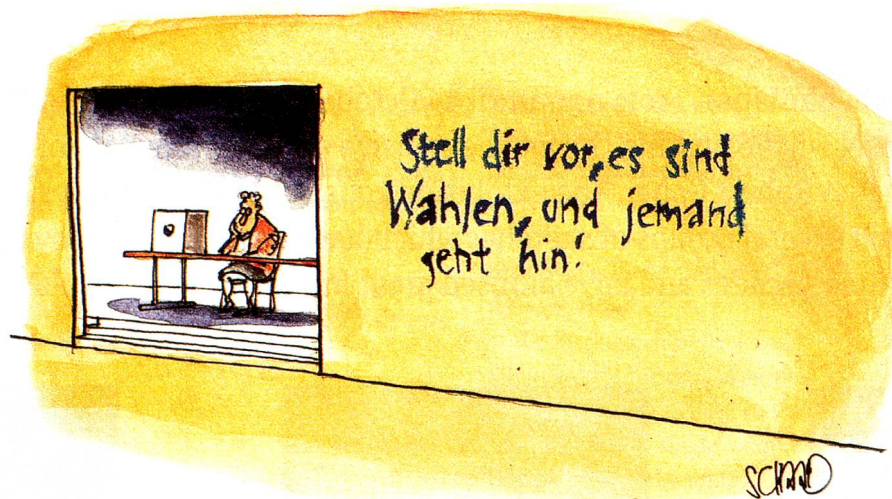 Stell dir vor, es sind
Wahlen, und jemand
geht hin!
SCHAAD